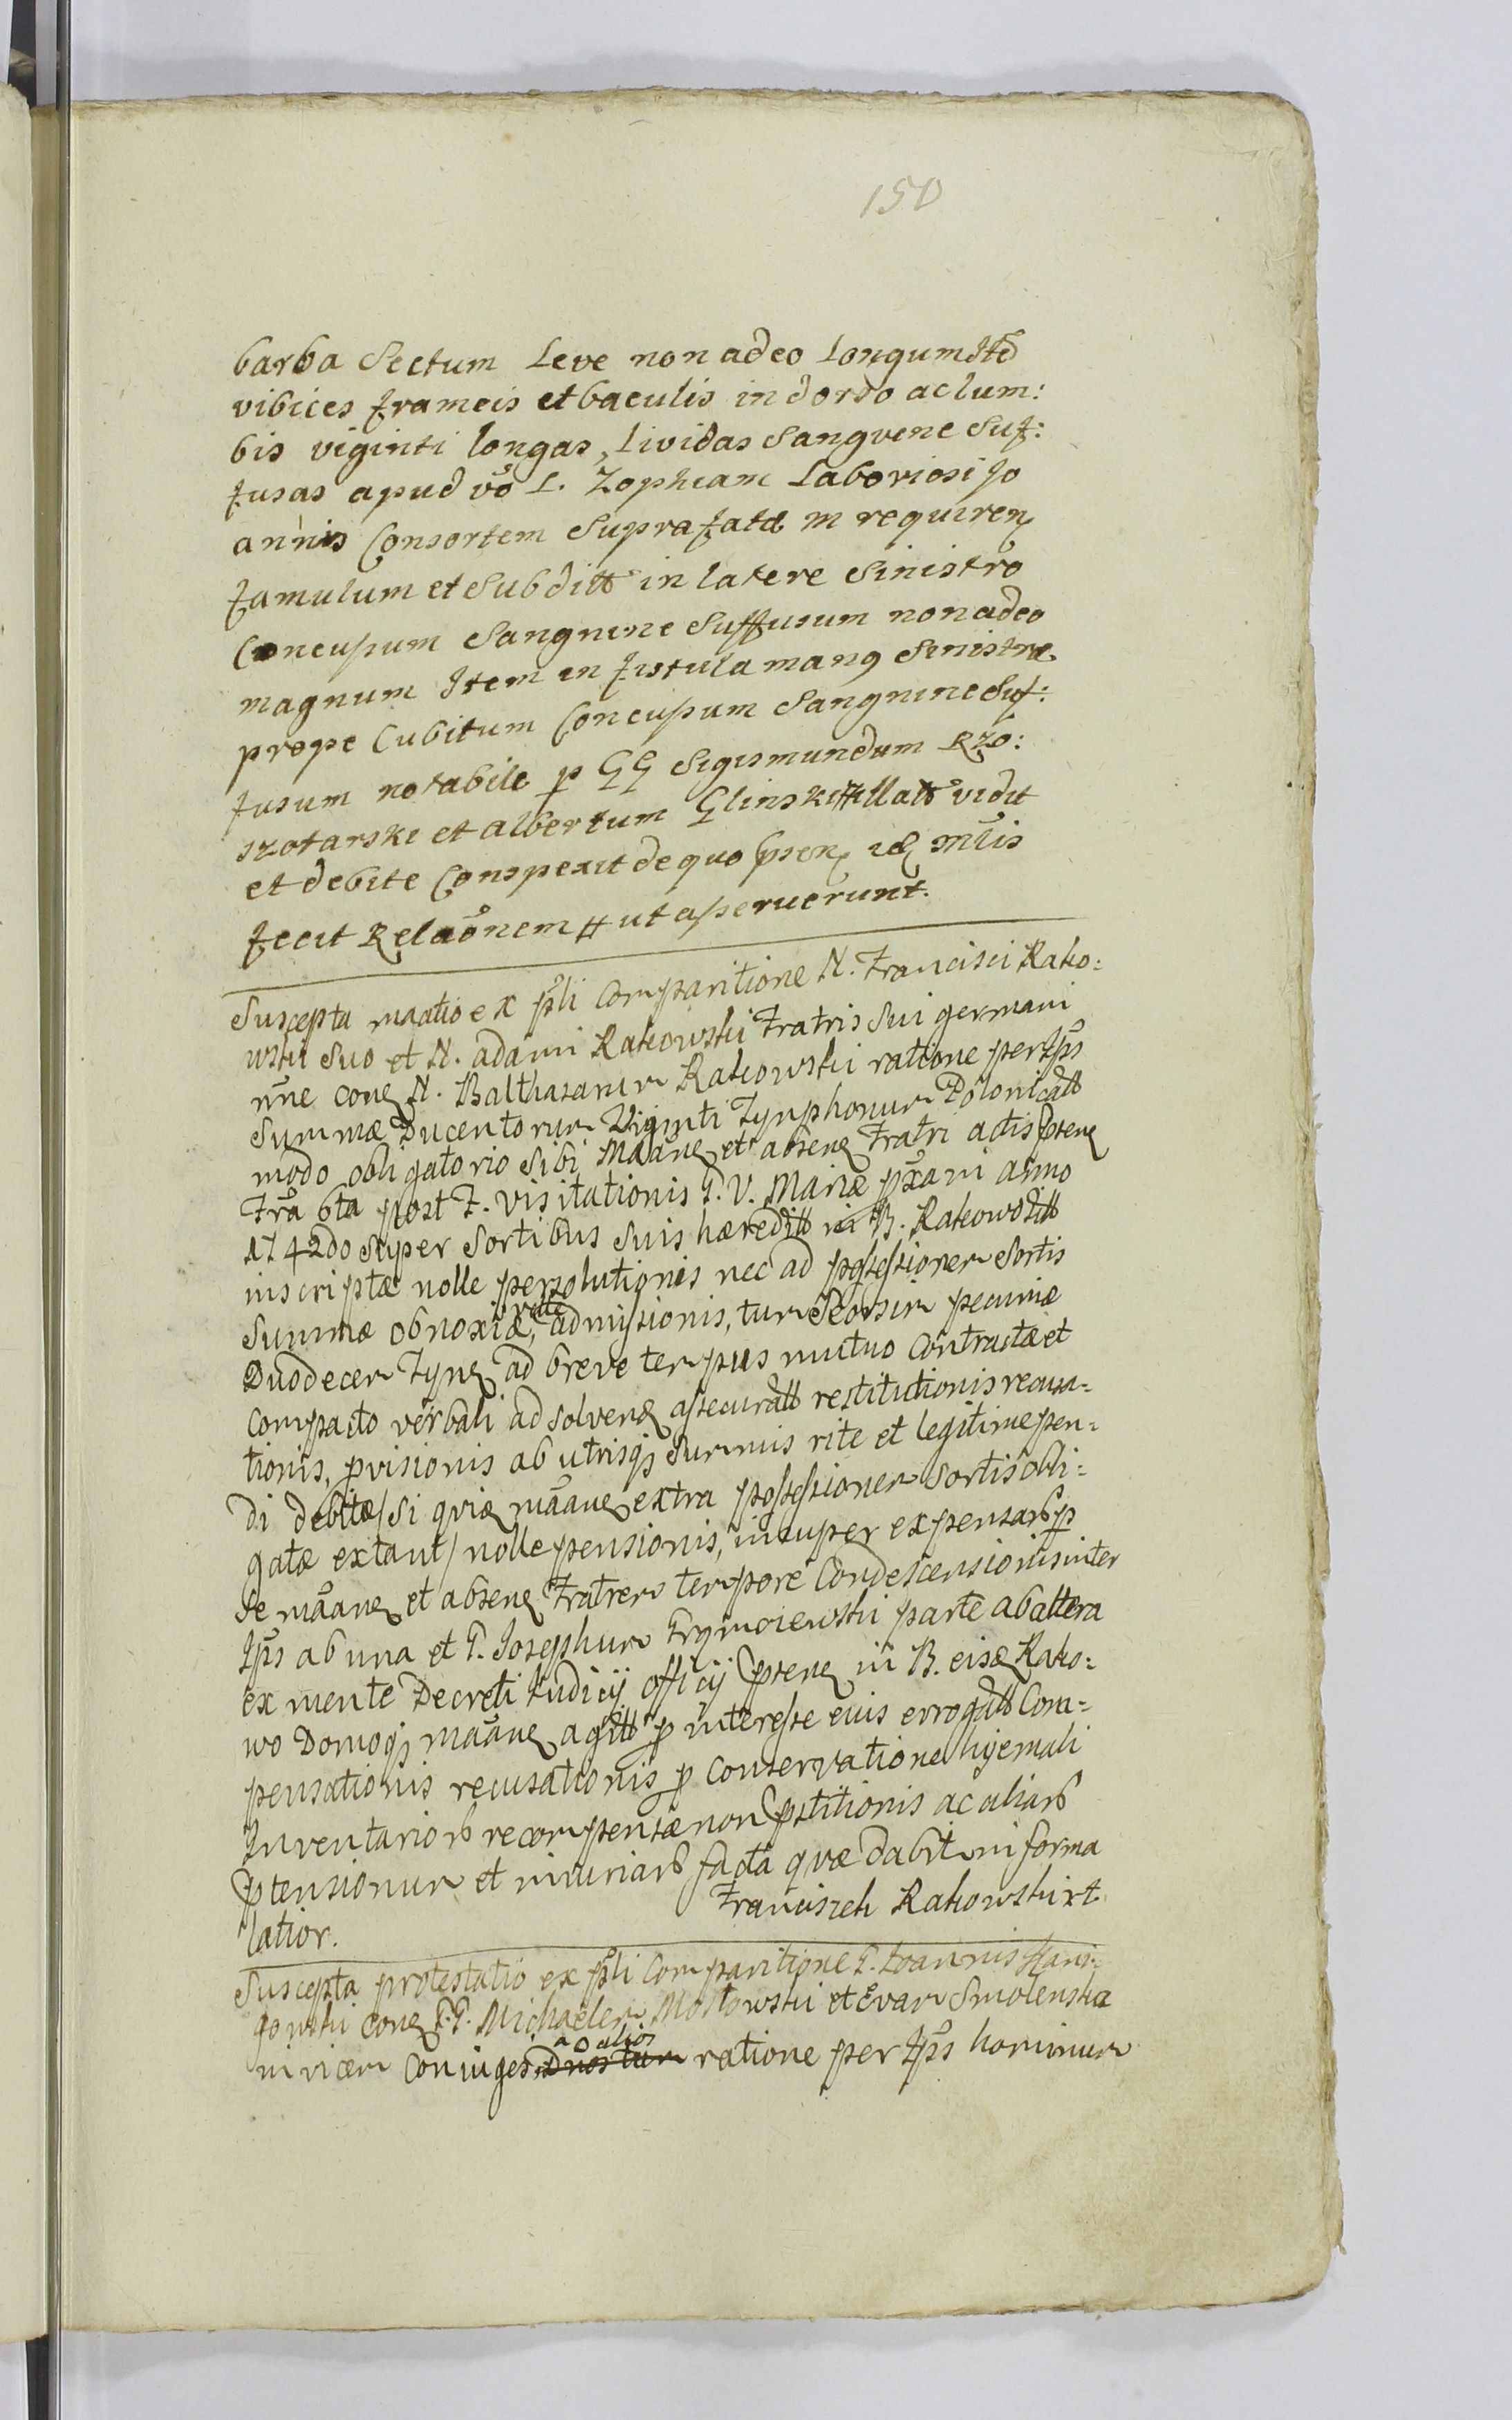 150
barba Sectum Leve non adeo Longum Itd
vibices frameis et baculis in dorso ac lum:
bis viginti longas, Lividas Sangvine Suf:
fusas apud vo L. Zophiam Laboriosi Jo
annis Consortem Suprafatæ m requiren
famulum et Subditt in latere Sinistro
Concussum Sangnine Suffusum non adeo
magnum Item in fistula manq Sinistræ
prope Cubitum Concussum Sangnine Suf:
fusum notabile p GG Sigismundum Rzo:
szotarski et Albertum Glinski illatt vidit
et debite Conspexit de quo psen id mlis
fecit Relaonem ut asseruerunt.
Suscepta maatio ex psli Comparitione N. Francisci Rako:
wski Suo et N. adami Rakowski Fratris Sui germani
nne con N. Balthasarum Rakowski ratione per Ips
Summæ Ducentorum Viginti Tynphonum Polonicalt
modo obligatorio Sibi Maan et absen Fratri actis psen
Fra 6ta post F. visitationis B. V. Mariæ pxani anno
1742do Super Sortibus Suis hæreditt in B. Rakowo Sitt
inscriptæ nolle persolutionis nec ad possessionem Sortis
Summæ obnoxiæ, velle admissionis, tum Seorsim pecuniæ
Duodecem Tyn ad breve tempus mutuo Contractæ et
Compacto verbali ad solven assecuratt restitutionis recusa-
tionis, pvisionis ab utrisqs Summis rite et legitime pen-
di debitæ / Si quiæ maan extra possessionem Sortis obli-
gatæ extant / nolle pensionis, insuper expensarb p
Se maan et absen Fratrem tempore Condescensionis inter
Ips ab una et G. Josephum Trynciewski parte ab altera
ex mente Decreti Judicij officij psen in B. eisd Rako:
wo Domoqs maan agitt p interesse eius errogatt Com-
pensationis recusationis p Conservatione hyemali
Inventariorb recompensæ non pstitionis ac aliarb
ptensionum et iniuriarb facta quæ dabit in forma
latior. Franciszek Rakowski xt
Suscepta protestatio ex psli Comparitione G. Joannis
gowski con G.G. Michaelem Mostowski et Evam Smolenska
invicem Coniuges Dnos tum ac alios ratione per Ips hominum